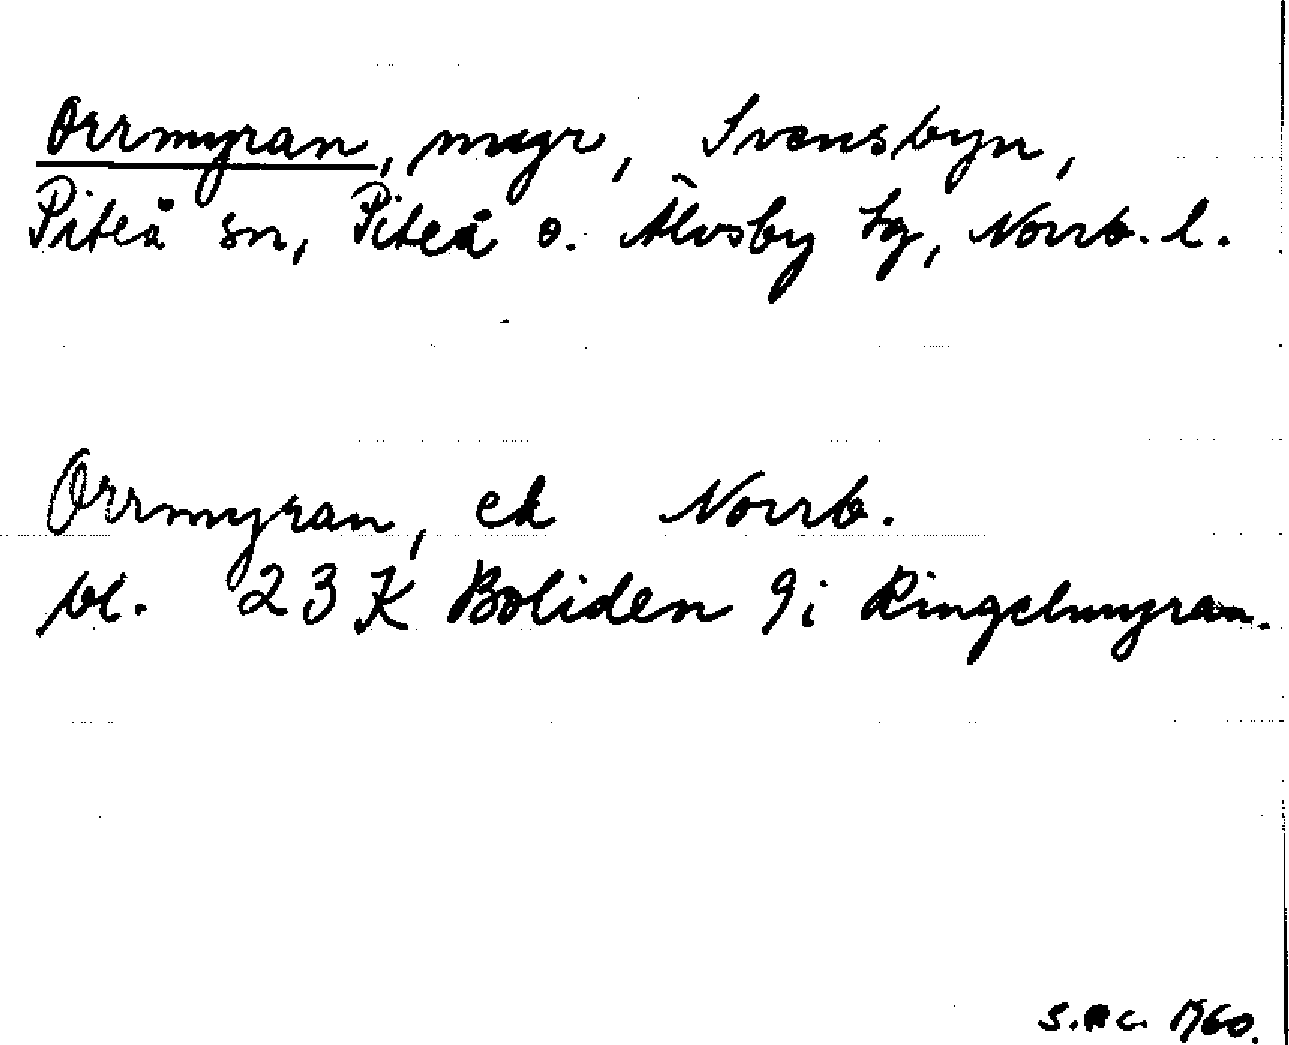 Orrmyran, myr, Svensbyn,
Piteå sn, Piteå o. Älvsby tg, Norrb. l.
Orrmyran, ek Norrb.
bl. 23 K Boliden 9i Ringelmyran.
1960.